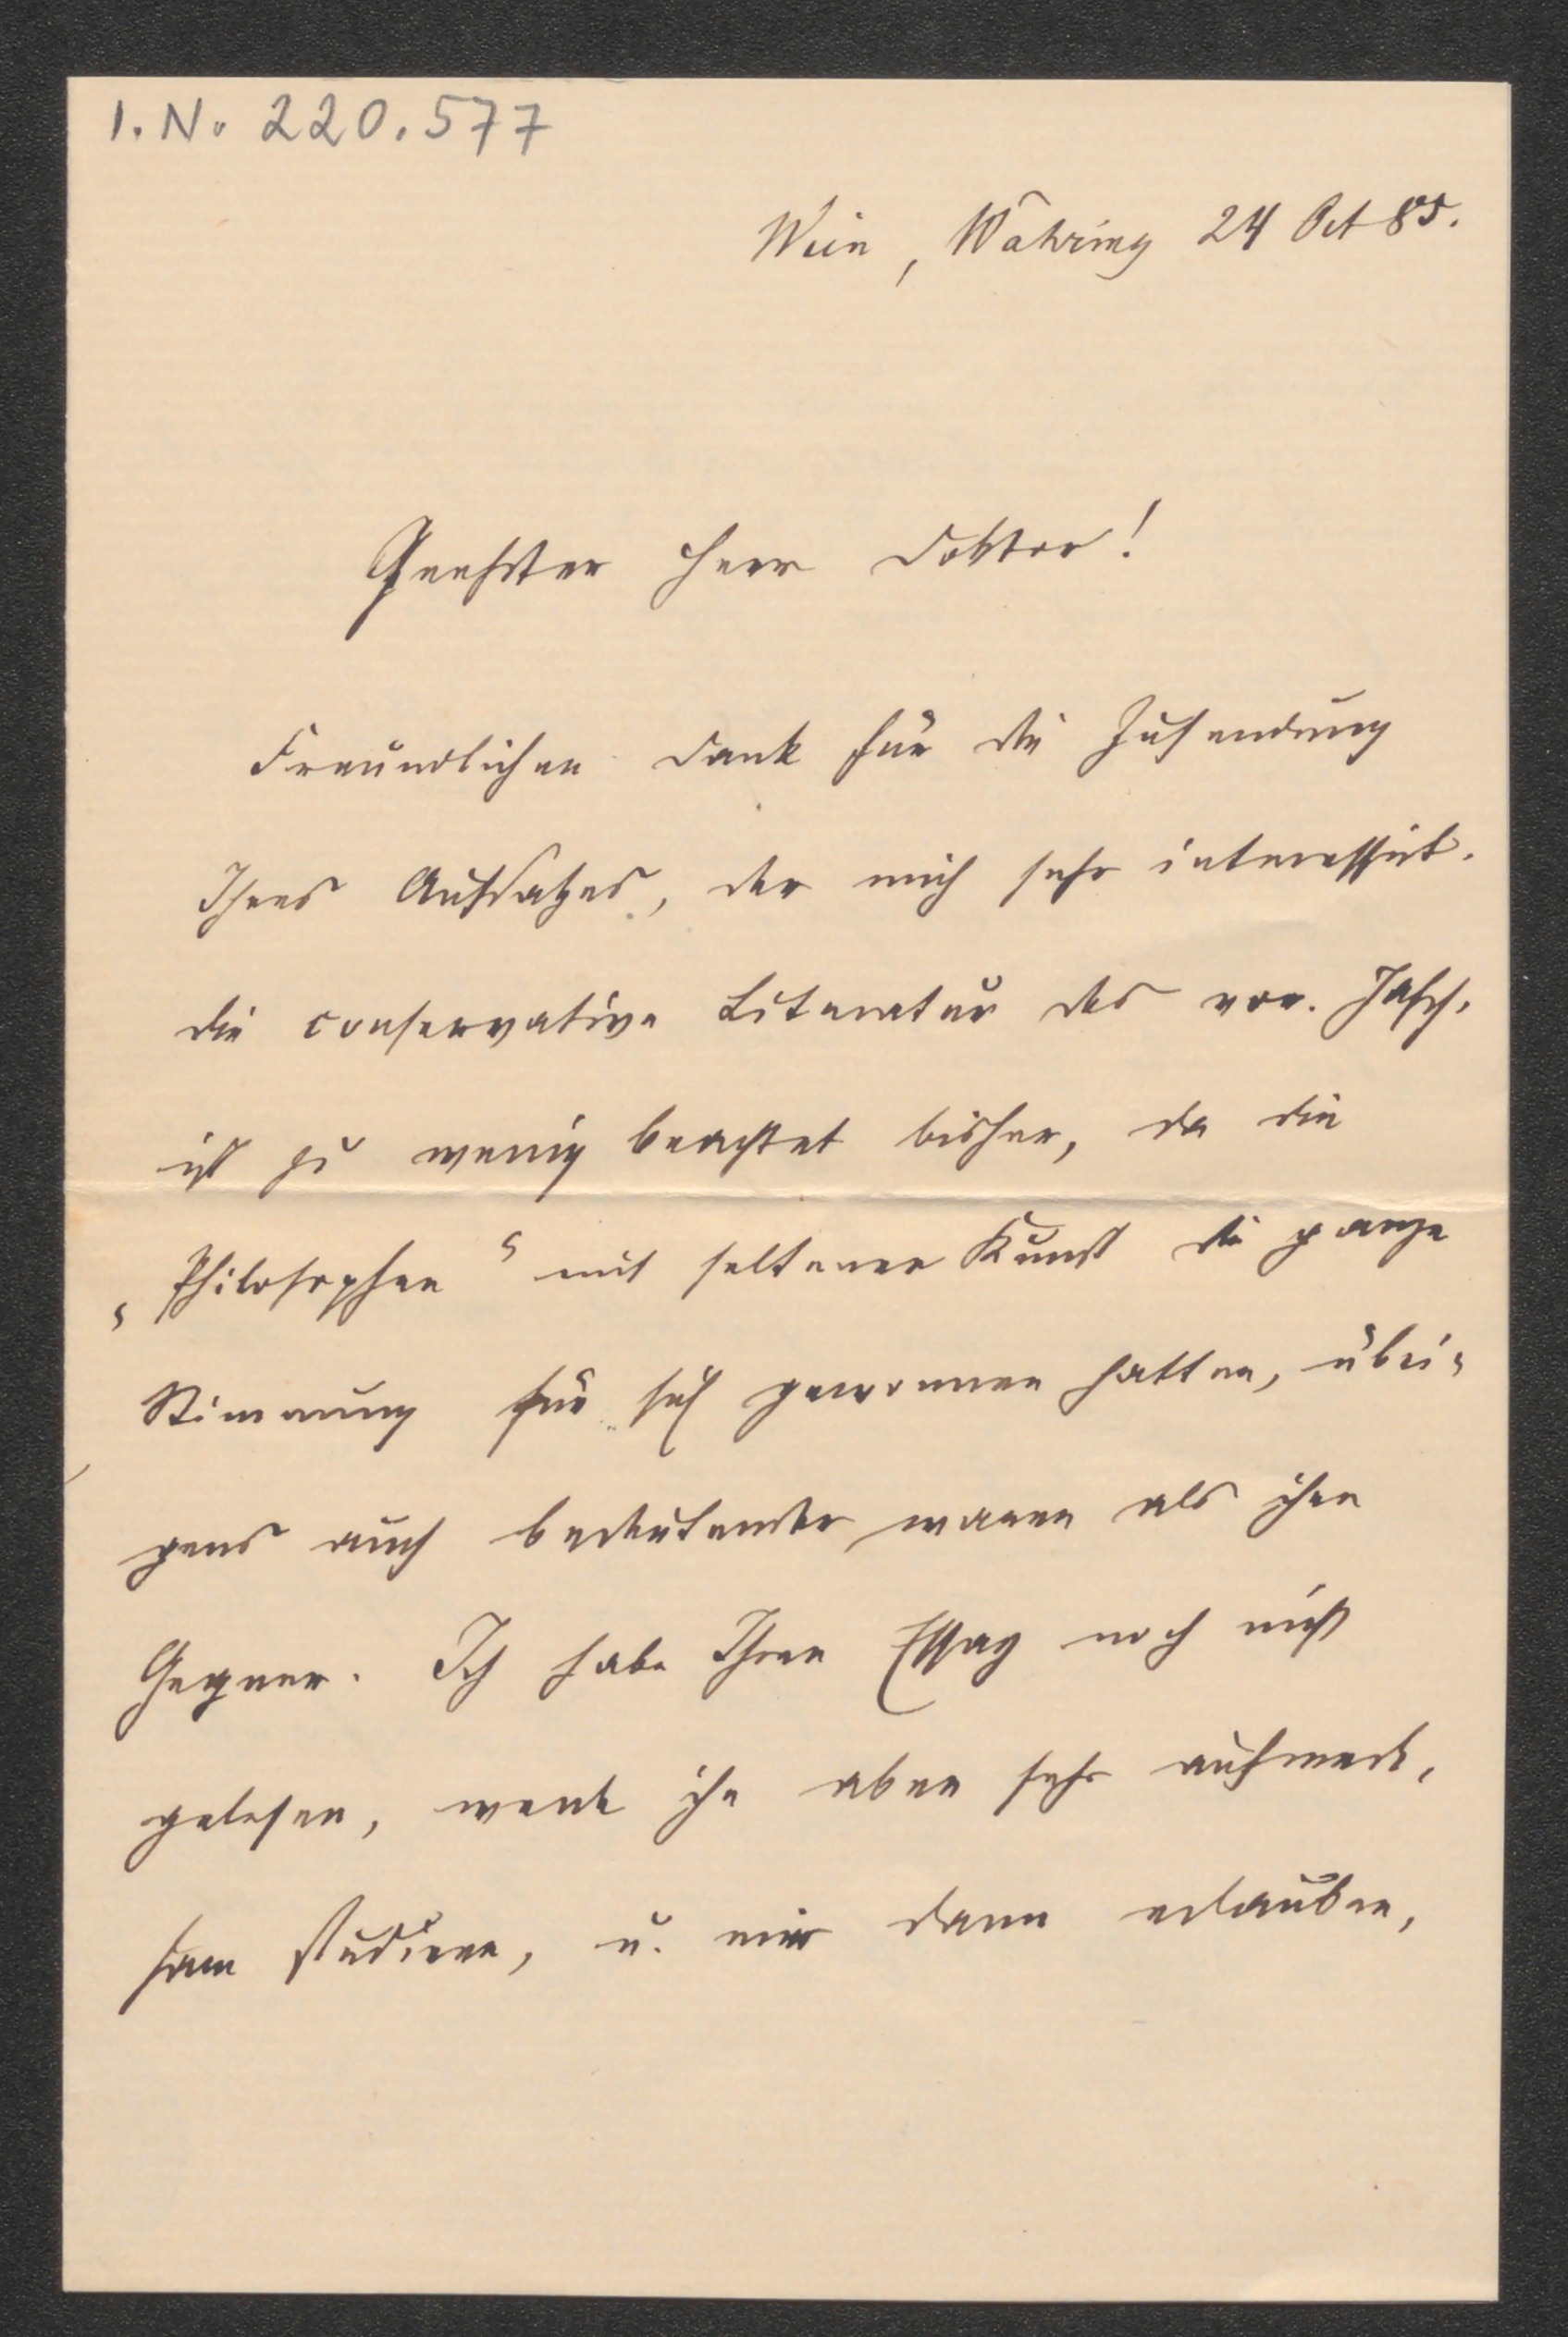 I. N. 220.577
Wien, Währing 24 Oct 85.
Geehrter Herr Doktor!
Freundlichen Dank für die Zusendung
Ihres Aufsatzes, der mich sehr interessirt.
Die conservative Literatur des vor. Jahrh.
ist zu wenig beachtet bisher, da die
„Philosophen“ mit seltener Kunst die ganze
Stimmung für sich gewonnen hatten, übri-
gens auch bedeutender waren als ihre
Gegner. Ich habe Ihren Essay noch nicht
gelesen, werde ihn aber sehr aufmerk-
sam studieren, u. mir dann erlauben,